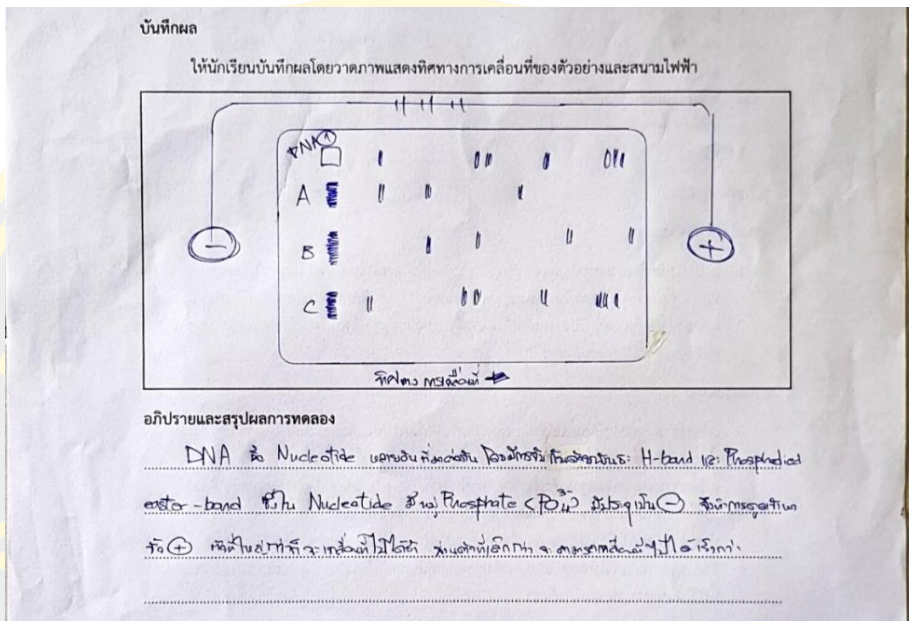 บันทึกผล
ให้นักเรียนบันทึกผลโดยวาดภาพแสดงทิศทางการเคลื่อนที่ของตัวอย่างและสนามไฟฟ้า
DNA
A
B
C
-
+
ทิศทาง การเคลื่อนที่
อภิปรายและสรุปผลการทดลอง
DNA คือ Nucleotide หลายอัน ที่มาต่อกัน โดยมีการจับกันด้วยพันธะ H-bond และ Phosphodiester-bond
ซึ่งใน Nucleotide มีหมู่ Phosphate มีประจุเป็น -
ขั้ว + ตัวที่ใหญ่กว่าก็จะเคลื่อนที่ไปได้ช้า ส่วนตัวที่เล็กกว่า จะสามารถเคลื่อนที่ไปได้เร็วกว่า